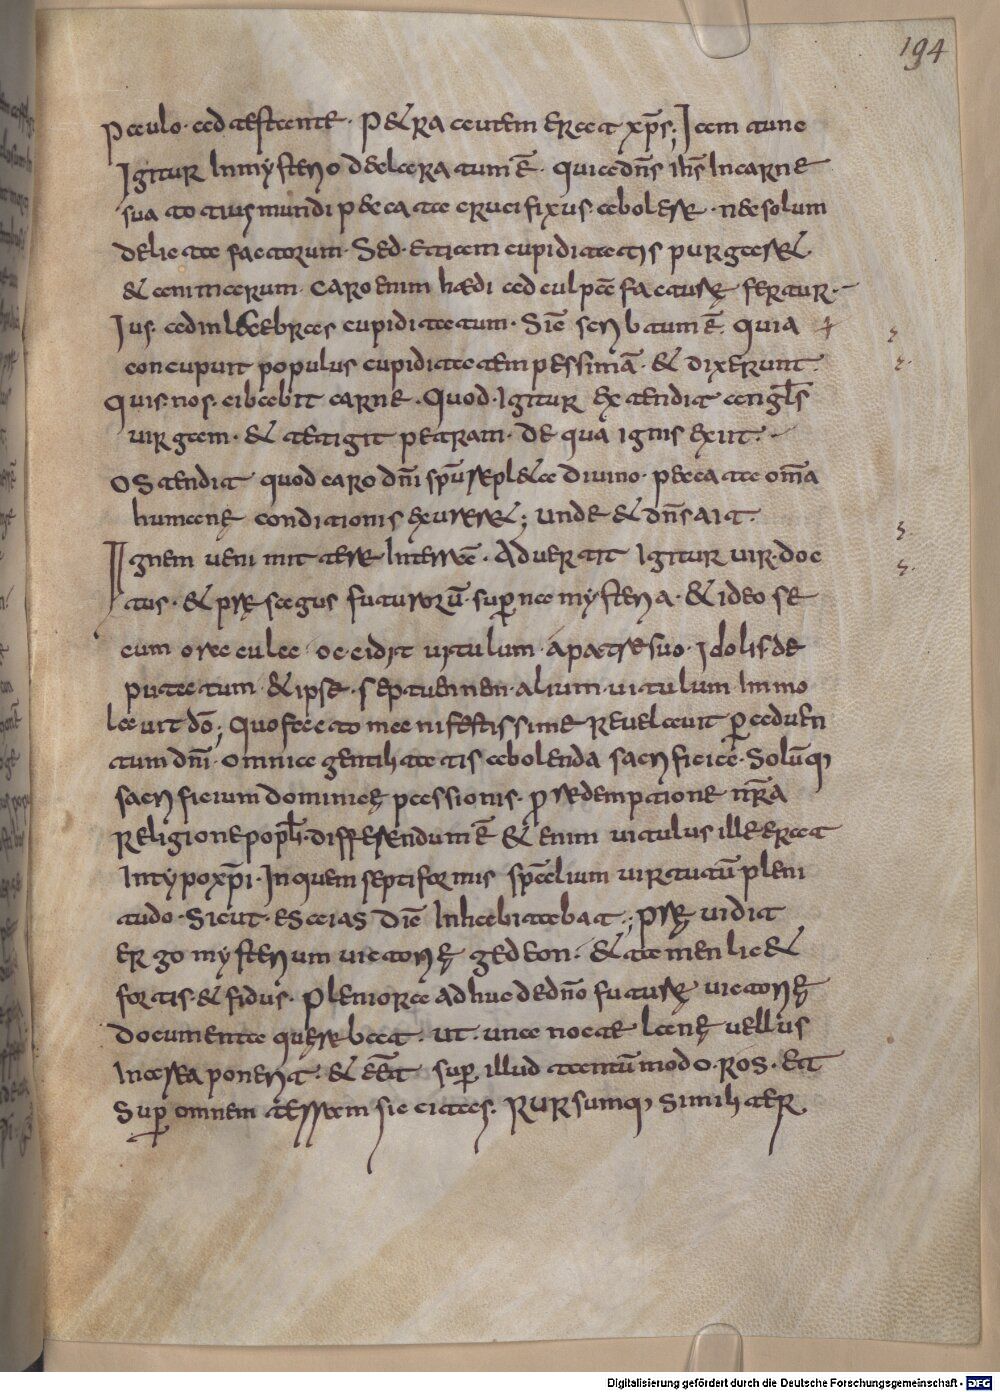 194
Paulo adtestante. Petra autem erat xp̄s; Iam tunc
Igitur In mysterio declaratum ē. quia dn̄s ih̄s In carne
sua totius mundi peccata crucifixus aboleret. nec solum
delicta factorum. Sed. etiam cupiditatis purgaret
& animarum. caro enim hædi ad culpā facturę fertur.
Ius. ad inlecebras cupiditatum. Sic̄ scribtum ē. quia
concupuit populus cupiditatem pessimā. & dixerunt.
Quis. nos. cibabit carne. Quod. Igitur extendit angl̄s
virgam. & tetigit petram. de qua ignis exiit.
Ostendit quod caro dn̄i sp̄u repleta divino. peccata om̄a
humanę conditionis exureret; unde & dn̄s ait.
Ignem veni mittere In terrā. Advertit igitur vir. doc
tus. & pręsagus futurorū. superna mysteria. & ideo se
cum oracula occidit vitulum. a patre suo. Idolis de
putatum. & ipse. septuennen. alium. vitulum. Immo
lavit dō; Quo facto manifestissime revelavit per adven
tum dn̄i. omnia gentilitatis abolenda sacrificia. Solūq;
sacrificium dominicę passionis. pro redemptione nr̄a
religione popl̄i. differendum ē & enim vitulus ille erat
In typo xp̄i. In quem septiformis sp̄alium virtutū pleni
tudo. Sicut. esaias dic̄ Inhabitabat; prę vidit
ergo mysterium victorię gedeon. & tamen lic&
fortis & fidus. pleniora adhuc de dn̄o futurę victorię
documenta quęrebat. ut. una nocte lanę vellus
In area ponerit. & eēt super illud tantūmodo. ros. et
Super omnem terram siccitas. Rursumq; similiter
Digitalisierung gefördert durch die Deutsche Forschungsgemeinschaft - DFG